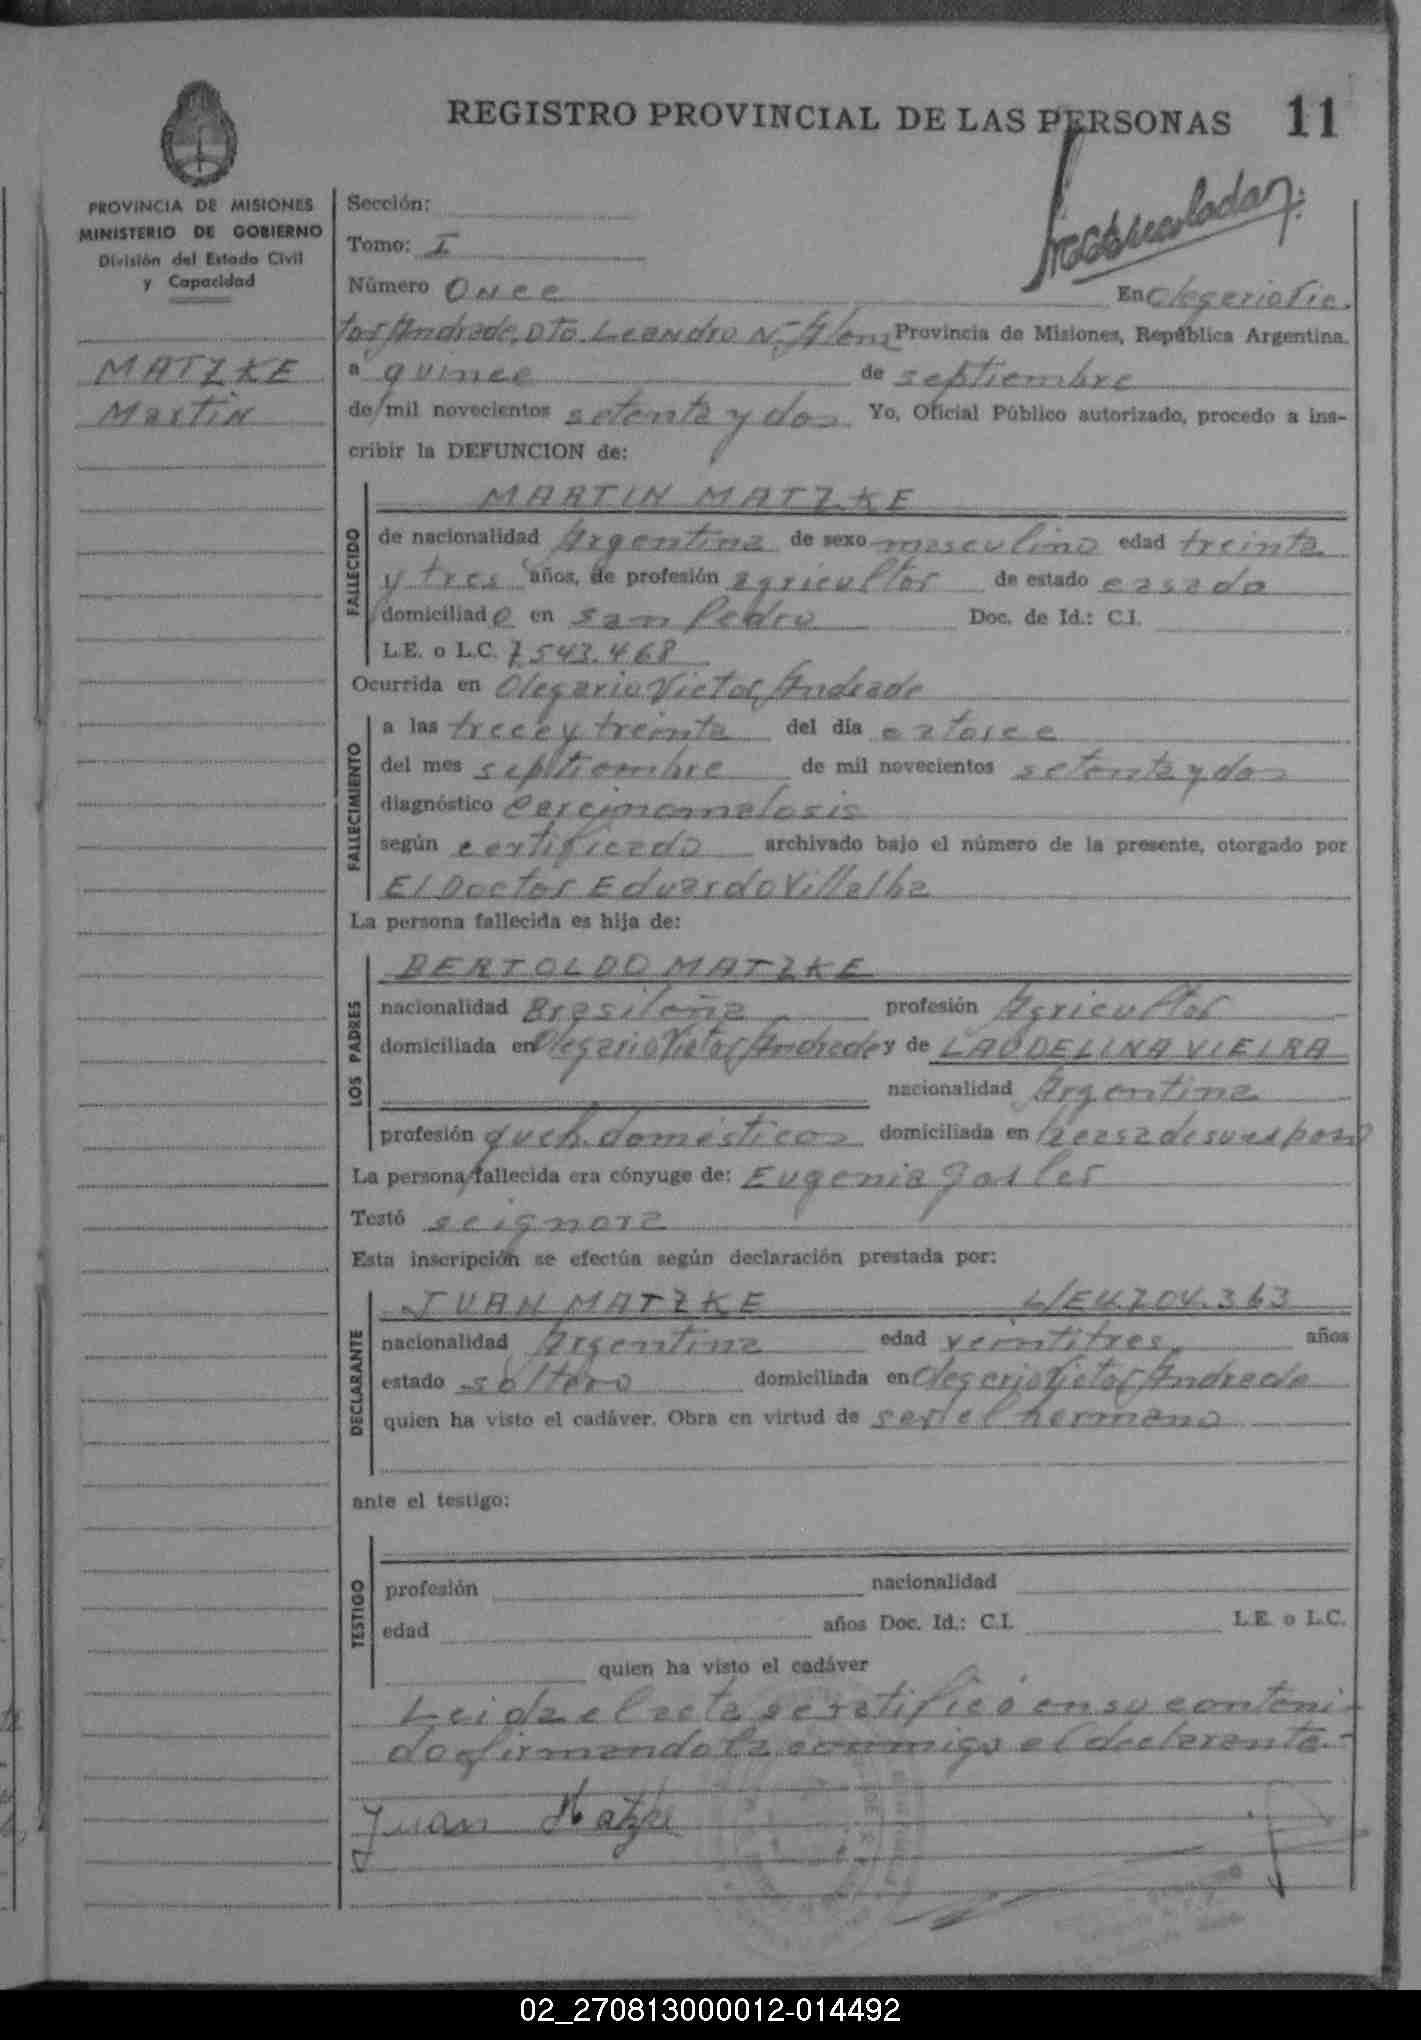 REGISTRO PROVINCIAL DE LAS PERSONAS 11
PROVINCIA DE MISIONES
MINISTERIO DE GOBIERNO
División del Estado Civil
y Capacidad
MATZKE
Martin
Sección:
Tomo: I
Número Once En Olegario Vic
tor Andrade, Dto. Leandro N. Alem Provincia de Misiones, República Argentina.
a quince de septiembre
de mil novecientos setenta y dos Yo, Oficial Público autorizado, procedo a ins-
cribir la DEFUNCION de:
FALLECIDO
MARTIN MATZKE
de nacionalidad Argentina de sexo masculino edad treinta
y tres años, de profesión agricultor de estado casado
domiciliado en San Pedro Doc. de Id.: C.I.
L.E. o L.C. 7.543.468
Ocurrida en Olegario Victor Andrade
FALLECIMIENTO
a las trece y treinta del día catorce
del mes septiembre de mil novecientos setenta y dos
diagnóstico Carcinomatosis
según certificado archivado bajo el número de la presente, otorgado por
El Doctor Eduardo Villalba
La persona fallecida es hija de:
LOS PADRES
BERTOLDO MATZKE
nacionalidad Brasileña profesión Agricultor
domiciliada en Olegario Victor Andrade y de LAUDELINA VIEIRA
nacionalidad Argentina
profesión queh. domésticos domiciliada en la casa de su esposo
La persona fallecida era cónyuge de: Eugenia
Testó se ignora
Esta inscripción se efectúa según declaración prestada por:
DECLARANTE
JUAN MATZKE L/E 4.704.363
nacionalidad Argentina edad veintitres años
estado soltero domiciliada en Olegario Victor Andrade
quien ha visto el cadáver. Obra en virtud de ser el hermano
ante el testigo:
TESTIGO
profesión nacionalidad
edad años Doc. Id.: C.I. L.E. o L.C.
quien ha visto el cadáver
Leida el acta se ratificó en su conteni-
do firmandola conmigo el declarante.-
Juan Matzke
02_270813000012-014492